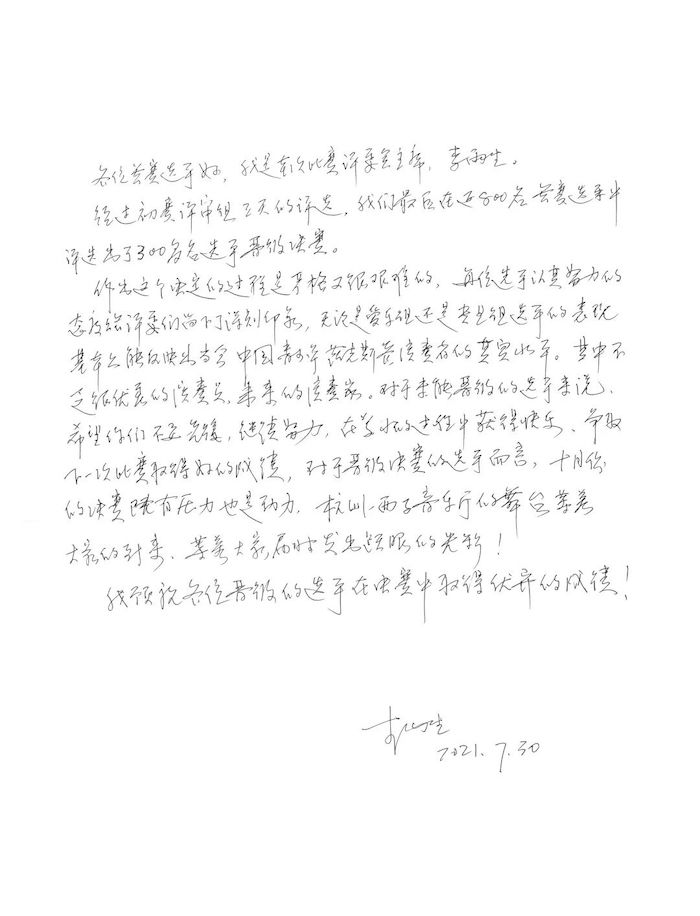 各位参赛选手好，我是本次比赛评委会主席，李雨生。
经过初赛评审组三天的评选，我们最后在近800名参赛选手中
评选出了300多名选手晋级决赛。
作出这个决定的过程是严格又很艰难的，每位选手认真努力的
态度给评委们留下深刻印象，无论是爱乐组还是专业组选手的表现
基本上能反映出当今中国青少年萨克斯管演奏者的真实水平。其中不
乏很优秀的演奏员、未来的演奏家。对于未能晋级的选手来说，
希望你们不要气馁，继续努力，在学习的过程中获得快乐、争取
下一次比赛取得好的成绩，对于晋级决赛的选手而言，十月份
的决赛既有压力也是动力，杭州西子音乐厅的舞台等着
大家的到来、等着大家届时发出耀眼的光彩！
我预祝各位晋级的选手在决赛中取得优异的成绩！
李雨生
2021.7.30